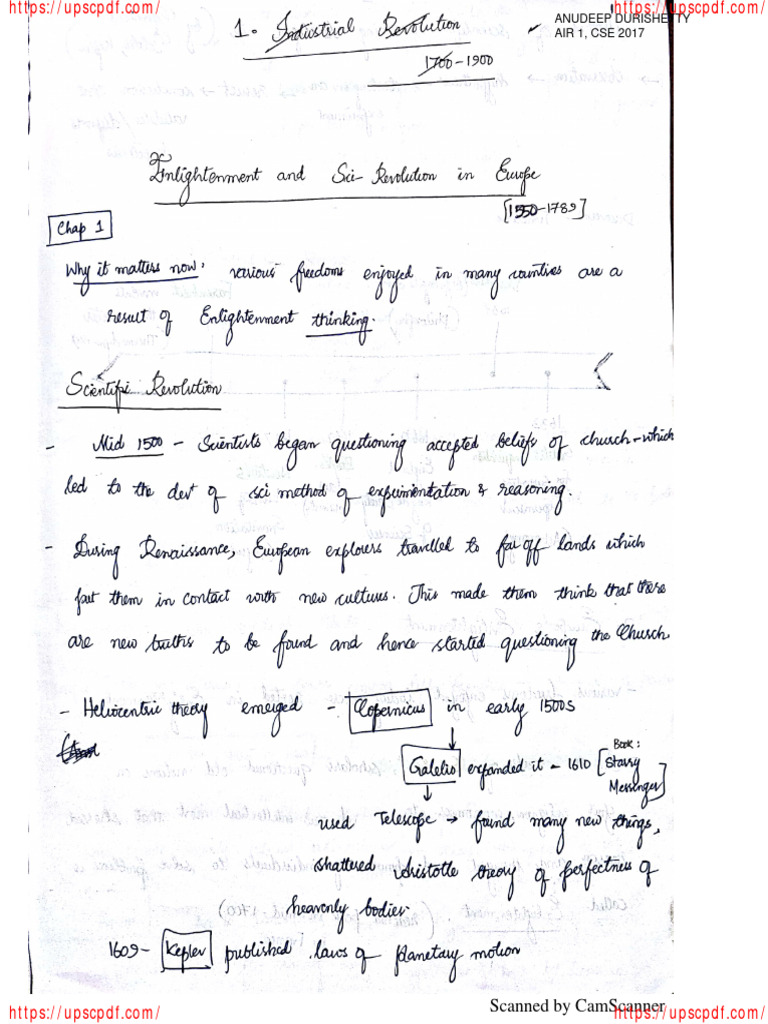 https://upscpdf.com/ https://upscpdf.com/
1. Industrial Revolution
ANUDEEP DURISHETTY
AIR 1, CSE 2017
1700-1900
Enlightenment and Sci-Revolution in Europe
[1550-1789]
Chap 1
Why it matters now: various freedoms enjoyed in many counties are a
result of Enlightenment thinking.
Scientific Revolution
- Mid 1500 - Scientists began questioning accepted beliefs of church - which
led to the devt of sci method of experimentation & reasoning.
- During Renaissance, European explorers travelled to far off lands which
put them in contact with new cultures. This made them think that there
are new truths to be found and hence started questioning the Church
- Heliocentric theory emerged - Copernicus in early 1500s
Galelio expanded it - 1610 [Book: Starry
Messenger]
used Telescope → found many new things,
shattered Aristotle theory of perfectness of
heavenly bodies
1609- Kepler published laws of planetary motion
Scanned by CamScanner
https://upscpdf.com/ https://upscpdf.com/